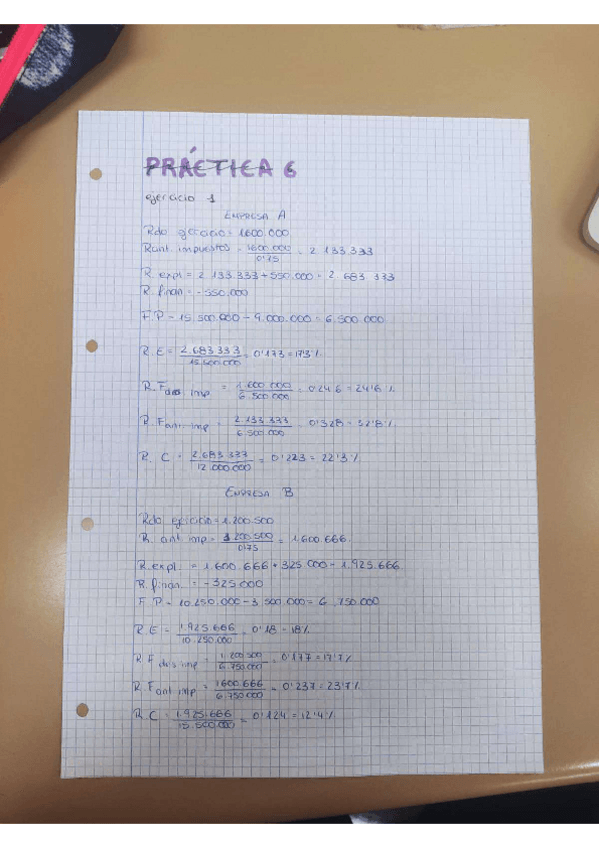 PRÁCTICA 6
ejercicio 1
EMPRESA A
Rdo ejercicio = 1600.000
R.ant. impuestos = 1600.000 / 0'75 = 2.133.333
R. expl = 2.133.333 + 550.000 = 2.683.333
R. finan = -550.000
F.P = 15.500.000 - 9.000.000 = 6.500.000
R.E = 2.683.333 / 15.500.000 = 0'173 = 17'3%
R.F des imp = 1.600.000 / 6.500.000 = 0'246 = 24'6%
R.F ant. imp = 2.133.333 / 6.500.000 = 0'328 = 32'8%
R. C = 2.683.333 / 12.000.000 = 0'223 = 22'3%
EMPRESA B
Rdo ejercicio = 1.200.500
R. ant imp = 1.200.500 / 0'75 = 1.600.666
R.expl = 1.600.666 + 325.000 = 1.925.666
R. finan = -325.000
F P = 10.250.000 - 3.500.000 = 6.750.000
R.E = 1.925.666 / 10.250.000 = 0'18 = 18%
R F des imp = 1.200.500 / 6.750.000 = 0'177 = 17'7%
R.F ant imp = 1600.666 / 6.750.000 = 0'237 = 23'7%
R C = 1.925.666 / 15.500.000 = 0'124 = 12'4%